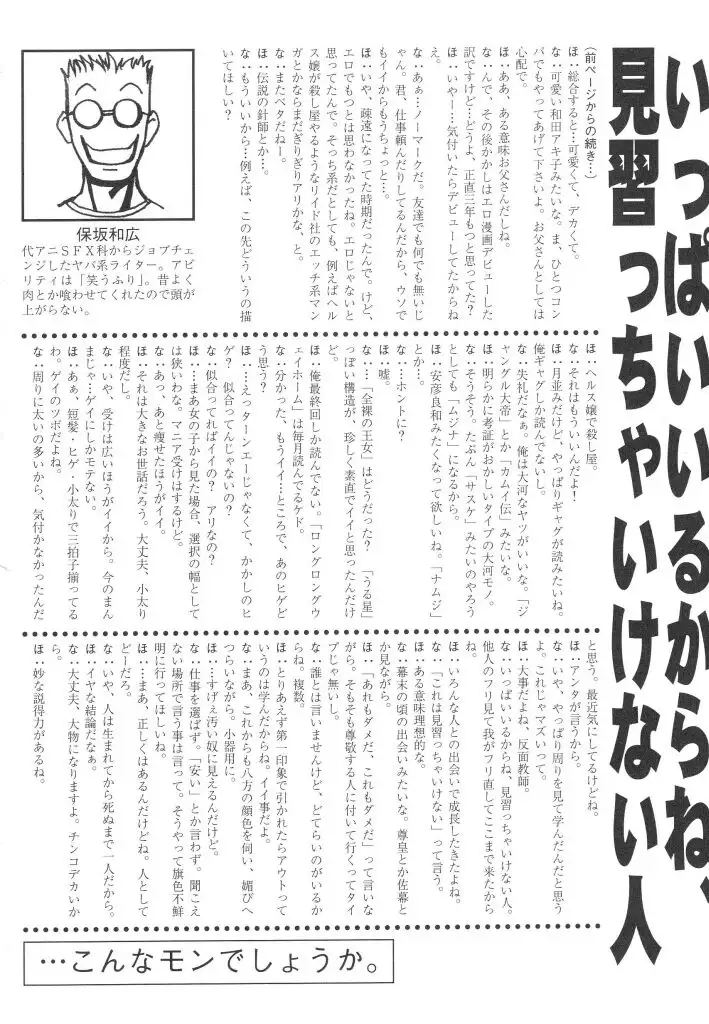 いっぱいいるからね、
見習っちゃいけない人
(前ページからの続き…)
ほ：総合すると…可愛くて、デカくて。
な：可愛い和田アキ子みたいな。ま、ひとつコン
パでもやってあげて下さいよ。お父さんとしては
心配で。
ほ：ああ、ある意味お父さんだしね。
な：んで、その後かかしはエロ漫画デビューした
訳ですけど…どうよ、正直三年もつと思ってた？
ほ：いやー…気付いたらデビューしてたからね
え。
な：あぁ…ノーマークだ。友達でも何でも無いじ
ゃん。君、仕事頼んだりしてるんだから、ウソで
もイイからもうちょっと…。
ほ：いや、疎遠になってた時期だったんで。けど、
エロでもつとは思わなかったね。エロじゃないと
思ってたんで。そっち系だとしても、例えばヘル
ス嬢が殺し屋やるようなリイド社のエッチ系マン
ガとかならまだぎりぎりアリかな、と。
な：またベタだねー。
ほ：伝説の針師とか…。
な：もういいから…例えば、この先どういうの描
いてほしい？
保坂和広
代アニＳＦＸ科からジョブチェ
ンジしたヤバ系ライター。アビ
リティは「笑うふり」。昔よく
肉とか喰わせてくれたので頭が
上がらない。
ほ：ヘルス嬢で殺し屋。
な：それはもういいんだよ！
ほ：月並みだけど、やっぱりギャグが読みたいね。
俺ギャグしか読んでないし。
な：失礼だなぁ。俺は大河なヤツがいいな。「ジ
ャングル大帝」とか「カムイ伝」みたいな。
ほ：明らかに考証がおかしいタイプの大河モノ。
な：そうそう。たぶん「サスケ」みたいのやろう
としても「ムジナ」になるから。
ほ：安彦良和みたくなって欲しいね。「ナムジ」
とか…。
な：ホントに？
ほ：嘘。
な：…「全裸の王女」はどうだった？「うる星」
っぽい構造が、珍しく素直でイイと思ったんだけ
ど。
ほ：俺最終回しか読んでない。「ロングロングウ
ェイホーム」は毎月読んでるケド。
な：分かった、もうイイ…ところで、あのヒゲど
う思う？
ほ：…えっターンエーじゃなくて、かかしのヒ
ゲ？　似合ってんじゃないの？
な：似合ってればイイの？　アリなの？
ほ：…まあ女の子から見た場合、選択の幅として
は狭いわな。マニア受けはするけど。
な：あっ、あと痩せたほうがイイ。
ほ：それは大きなお世話だろう。大丈夫、小太り
程度だし。
な：いや、受けは広いほうがイイから。今のまん
まじゃ…ゲイにしかモテない。
ほ：あぁ、短髪・ヒゲ・小太りで三拍子揃ってる
わ。ゲイのツボだよね。
な：周りに太いの多いから、気付かなかったんだ
と思う。最近気にしてるけどね。
ほ：アンタが言うから。
な：いや、やっぱり周りを見て学んだんだと思う
よ。これじゃマズいって。
ほ：大事だよね、反面教師。
な：いっぱいいるからね、見習っちゃいけない人。
他人のフリ見て我がフリ直してここまで来たから
ね。
ほ：いろんな人との出会いで成長したきたよね。
な：「これは見習っちゃいけない」って言う。
ほ：ある意味理想的な。
な：幕末の頃の出会いみたいな。尊皇とか佐幕と
か見ながら。
ほ：「あれもダメだ、これもダメだ」って言いな
がら。そもそも尊敬する人に付いて行くってタイ
プじゃ無いし。
な：誰とは言いませんけど、どてらいのがいるか
らね。複数。
ほ：とりあえず第一印象で引かれたらアウトって
いうのは学んだからね。イイ事だよ。
な：まあ、これからも八方の顔色を伺い、媚びへ
つらいながら。小器用に。
ほ：…すげぇ汚い奴に見えるんだけど。
な：仕事を選ばず。「安い」とか言わず。聞こえ
ない場所で言う事は言って。そうやって旗色不鮮
明に行ってほしいね。
ほ：…まあ、正しくはあるんだけどね。人として
どーだろ。
な：いや、人は生まれてから死ぬまで一人だから。
ほ：イヤな結論だなぁ。
な：大丈夫、大物になりますよ。チンコデカいか
ら。
ほ：妙な説得力があるね。
…こんなモンでしょうか。